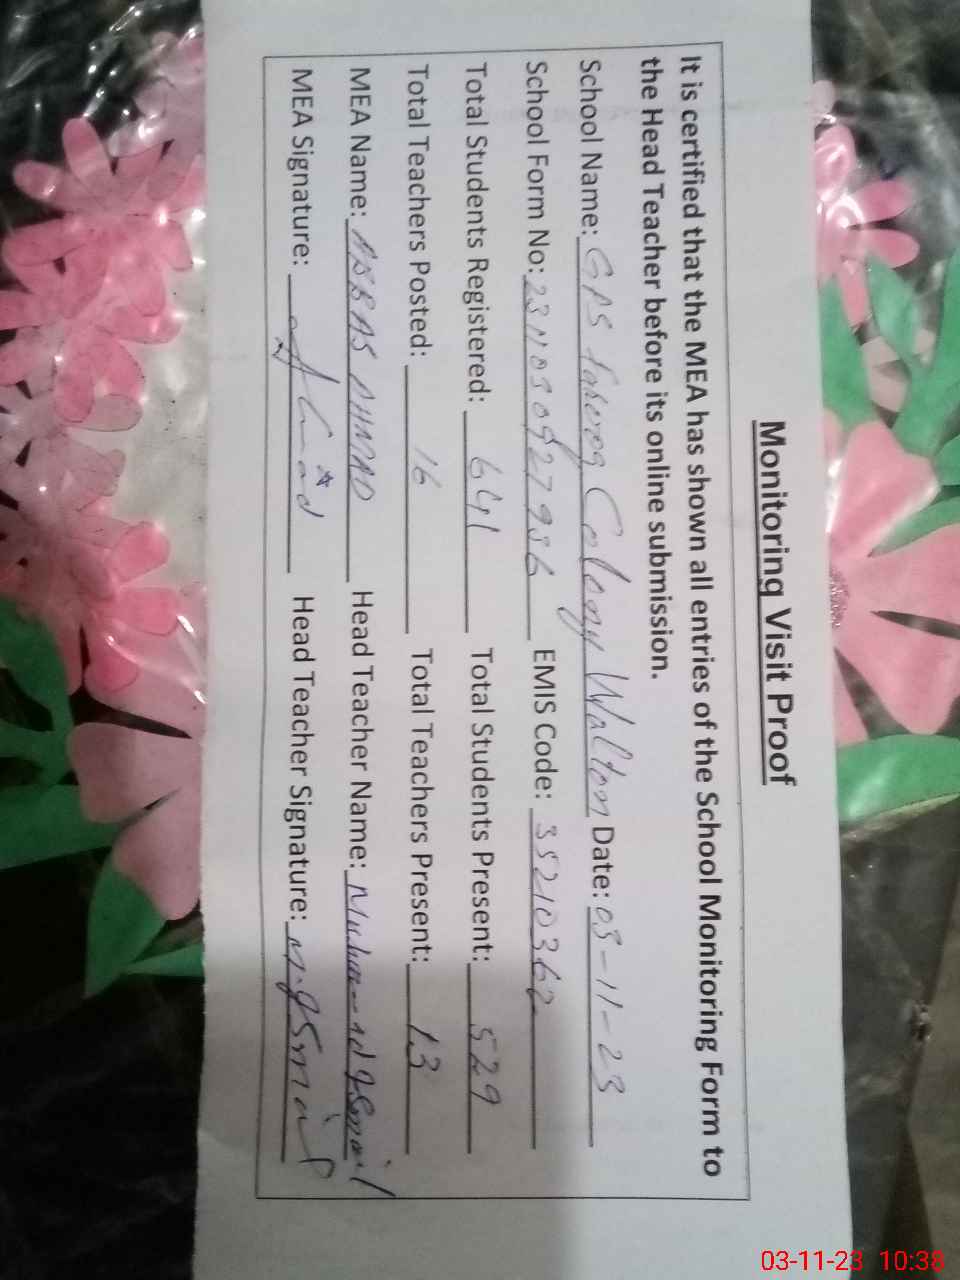 Monitoring Visit Proof
It is certified that the MEA has shown all entries of the School Monitoring Form to
the Head Teacher before its online submission.
School Name: GPS Colony Walton Date: 03-11-23
School Form No: EMIS Code: 35210362
Total Students Registered: 641 Total Students Present: 529
Total Teachers Posted: 16 Total Teachers Present: 13
MEA Name: ABBAS AHMAD Head Teacher Name: Muhammad Ismail
MEA Signature: Ahmad Head Teacher Signature: M. Ismail
03-11-23 10:38